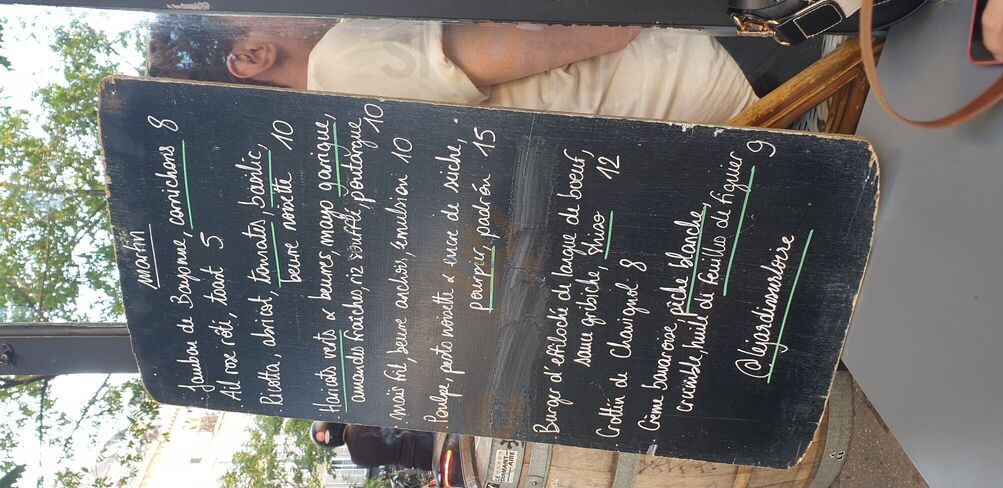 martin
Jambon de Bayonne, cornichons 8
Ail rose rôti, toast 5
Ricotta, abricot, tomates, basilic,
beurre noisette 10
Haricots verts & beurres, mayo garrigue,
amandes fraîches, riz soufflé, poutargue 10
Maïs fol, beurre anchois, émulsion 10
Poulpe, pesto noisette & encre de seiche,
pourpier, padrón 15
Burger d'effiloché de langue de boeuf,
sauce gribiche, shiso 12
Crottin de Chavignol 8
Crème bavaroise, pêche blanche,
crumble, huile de feuille de figuier 9
@lejardinsurloire